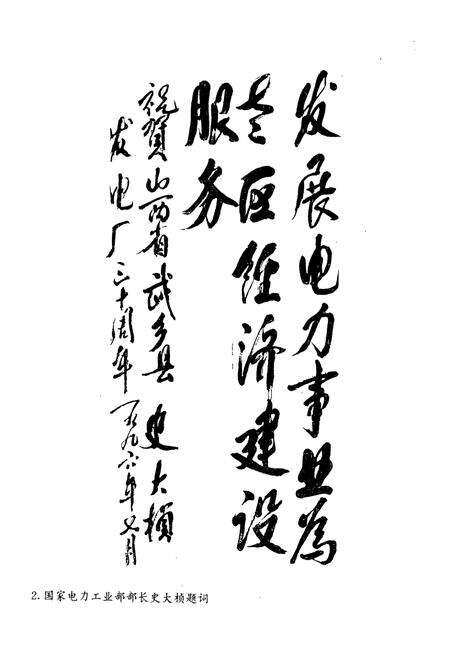 发展电力事业为
老区经济建设
服务
祝贺山西省武乡县
发电厂三十周年
史大桢
一九九六年七月
2.国家电力工业部部长史大桢题词